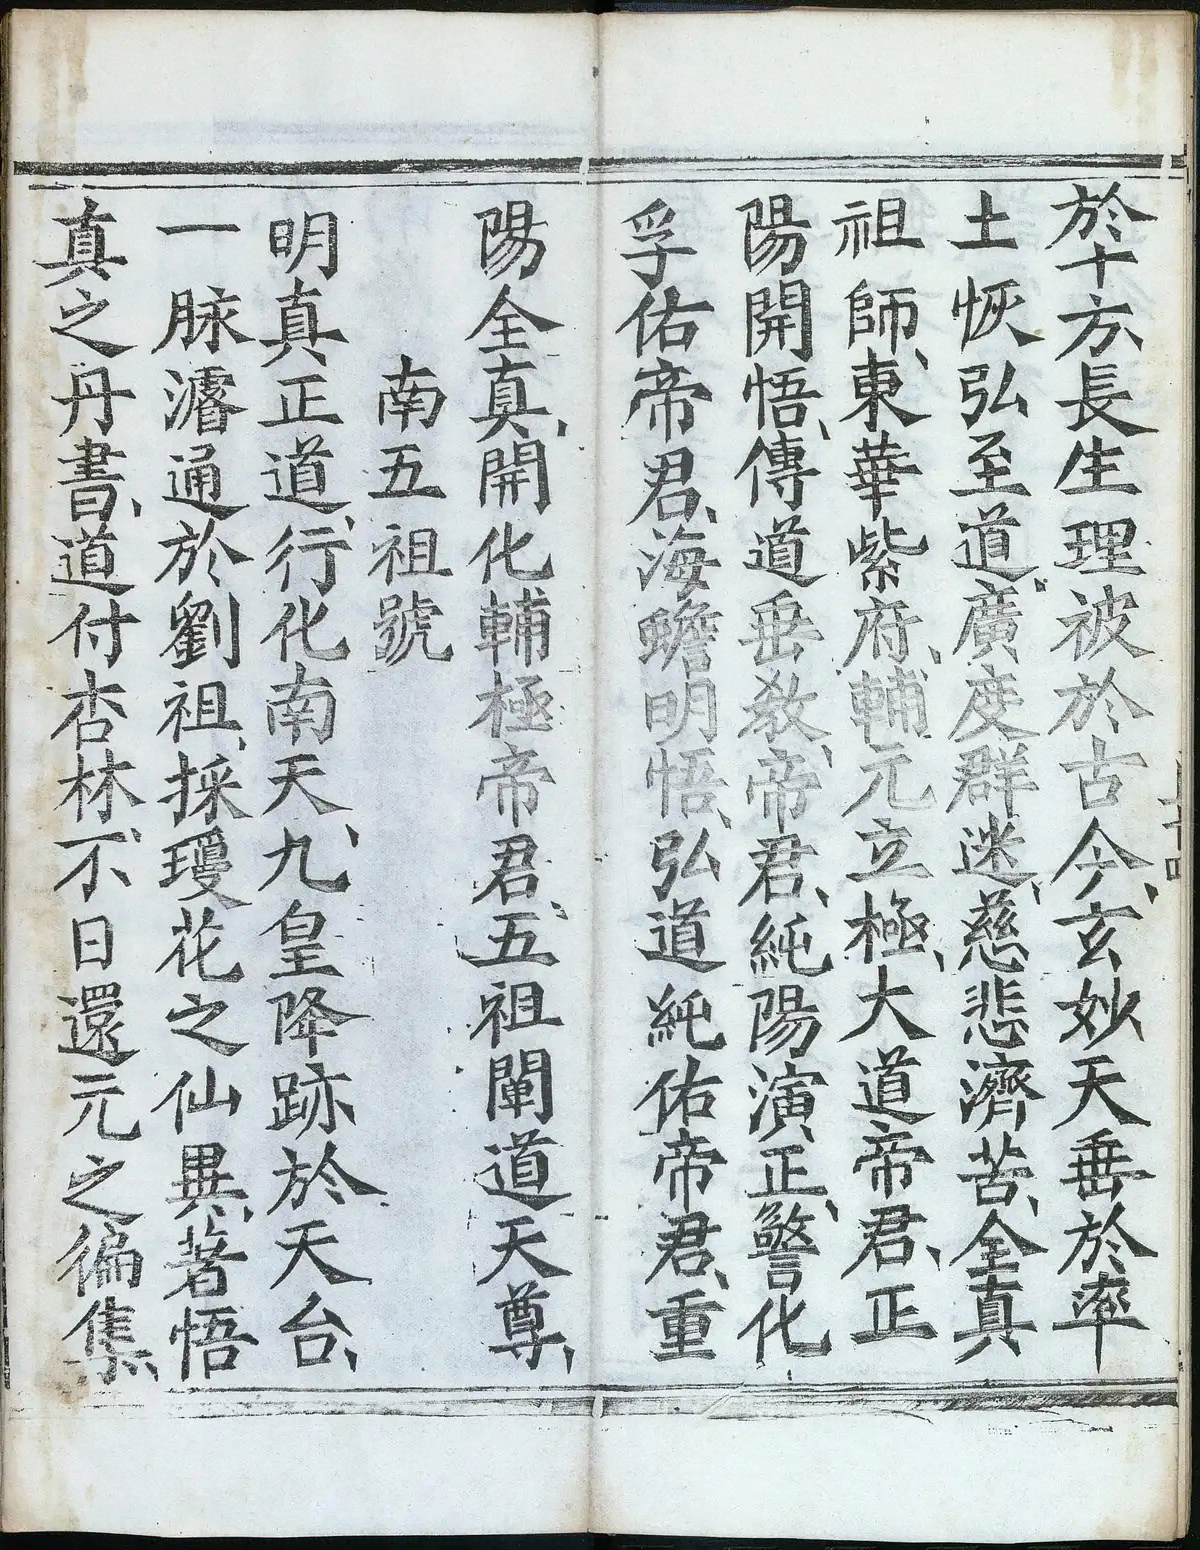 於十方、長生理被於古今、玄妙天垂於率
土恢弘至道、廣度群迷、慈悲濟苦、全真
祖師、東華紫府、輔元立極、大道帝君、正
陽開悟、傳道垂教、帝君、純陽演正、警化
孚佑帝君、海蟾明悟、弘道純佑帝君、重
陽全真、開化輔極帝君、五祖闡道天尊、
南五祖號
明真正道、行化南天、九皇降跡於天台、
一脉濬通於劉祖、採瓊花之仙異、著悟
真之丹書、道付杏林、不日還元之徧集、